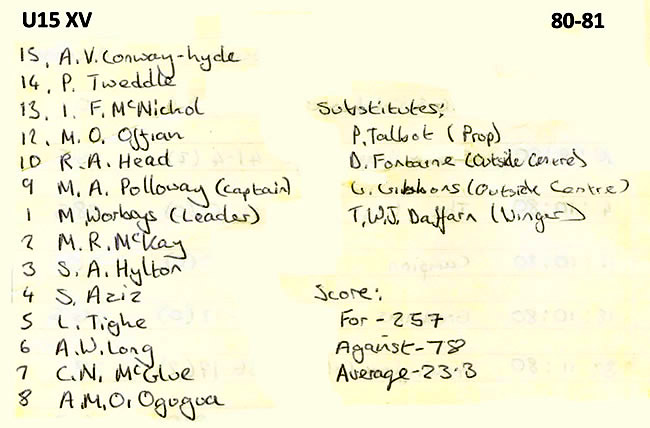 U15 XV 80-81
15, A.V. Conway-hyde
14, P. Tweddle
13, I. F. McNichol
12, M. O. Offian
10 R. A. Head
9 M. A. Polloway (captain)
1 M Worboys (Leader)
2 M. R. McKay
3 S. A. Hylton
4 S. Aziz
5 L. Tighe
6 A. W. Long
7 C. N. McGlue
8 A.M.O. Ogogua
Substitutes;
P. Talbot (Prop)
D. Fontaine (Outside Centre)
G. Gibbons (Outside Centre)
T.W.J. Daffarn (Winger)
Score:
For - 257
Against - 78
Average - 23.3